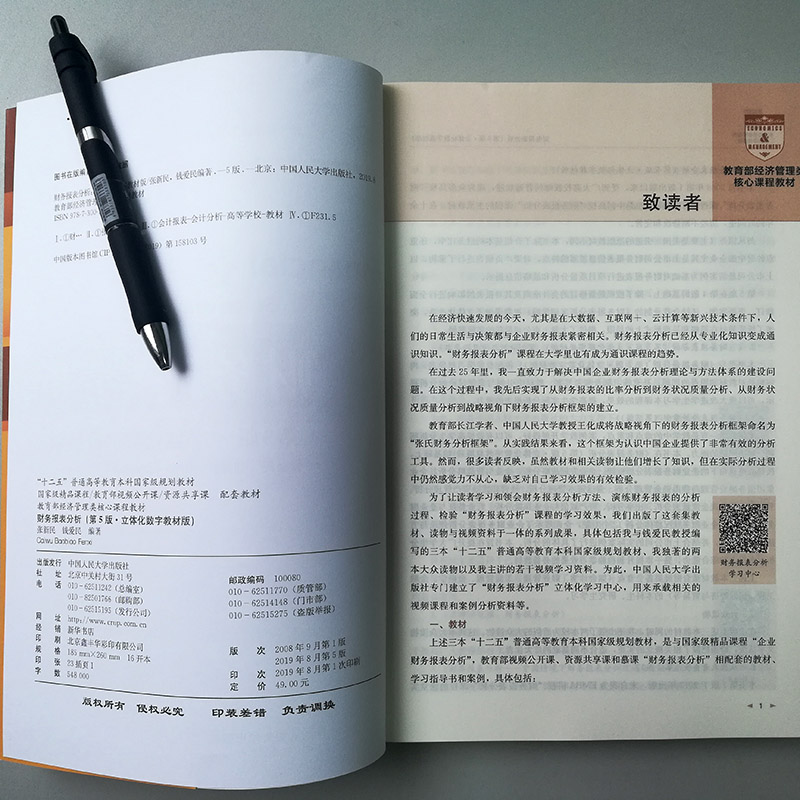 图书在版编
教材版/张新民，钱爱民编著.—5版.—北京：中国人民大学出版社，2019.8
财务报表分析
教育部经济管理类
教材
ISBN 978-7-300
Ⅰ.①财… Ⅱ.①张
①会计报表-会计分析-高等学校-教材 Ⅳ.①F231.5
中国版本图书馆CIP
19）第158103号
“十二五”普通高等教育本科国家级规划教材
国家级精品课程/教育部视频公开课/资源共享课 配套教材
教育部经济管理类核心课程教材
财务报表分析（第5版·立体化数字教材版）
张新民 钱爱民 编著
Caiwu Baobiao Fenxi
出版发行 中国人民大学出版社
社址 北京中关村大街31号 邮政编码 100080
电话 010-62511242（总编室） 010-62511770（质管部）
010-82501766（邮购部） 010-62514148（门市部）
010-62515195（发行公司） 010-62515275（盗版举报）
网址 http://www.crup.com.cn
经销 新华书店
印刷 北京鑫丰华彩印有限公司
规格 185 mm×260 mm 16开本 版次 2008年9月第1版
2019年8月第5版
印张 23 插页1 印次 2019年8月第1次印刷
字数 548 000 定价 49.00元
版权所有 侵权必究 印装差错 负责调换
ECONOMICS
&
MANAGEMENT
教育部经济管理类
核心课程教材
致读者
在经济快速发展的今天，尤其是在大数据、互联网+、云计算等新兴技术条件下，人
们的日常生活与决策都与企业财务报表紧密相关。财务报表分析已经从专业化知识变成通
识知识。“财务报表分析”课程在大学里也有成为通识课程的趋势。
在过去25年里，我一直致力于解决中国企业财务报表分析理论与方法体系的建设问
题。在这个过程中，我先后实现了从财务报表的比率分析到财务状况质量分析、从财务状
况质量分析到战略视角下财务报表分析框架的建立。
教育部长江学者、中国人民大学教授王化成将战略视角下的财务报表分析框架命名为
“张氏财务分析框架”。从实践结果来看，这个框架为认识中国企业提供了非常有效的分析
工具。然而，很多读者反映，虽然教材和相关读物让他们增长了知识，但在实际分析过程
中仍然感觉力不从心，缺乏对自己学习效果的有效检验。
为了让读者学习和领会财务报表分析方法、演练财务报表的分析
过程、检验“财务报表分析”课程的学习效果，我们出版了这套集教
材、读物与视频资料于一体的系列成果，具体包括我与钱爱民教授编
写的三本“十二五”普通高等教育本科国家级规划教材、我独著的两
本大众读物以及我主讲的若干视频学习资料。为此，中国人民大学出
版社专门建立了“财务报表分析”立体化学习中心，用来承载相关的
视频课程和案例分析资料等。
财务报表分析
学习中心
一、教材
上述三本“十二五”普通高等教育本科国家级规划教材，是与国家级精品课程“企业
财务报表分析”，教育部视频公开课、资源共享课和慕课“财务报表分析”相配套的教材、
学习指导书和案例，具体包括：
1